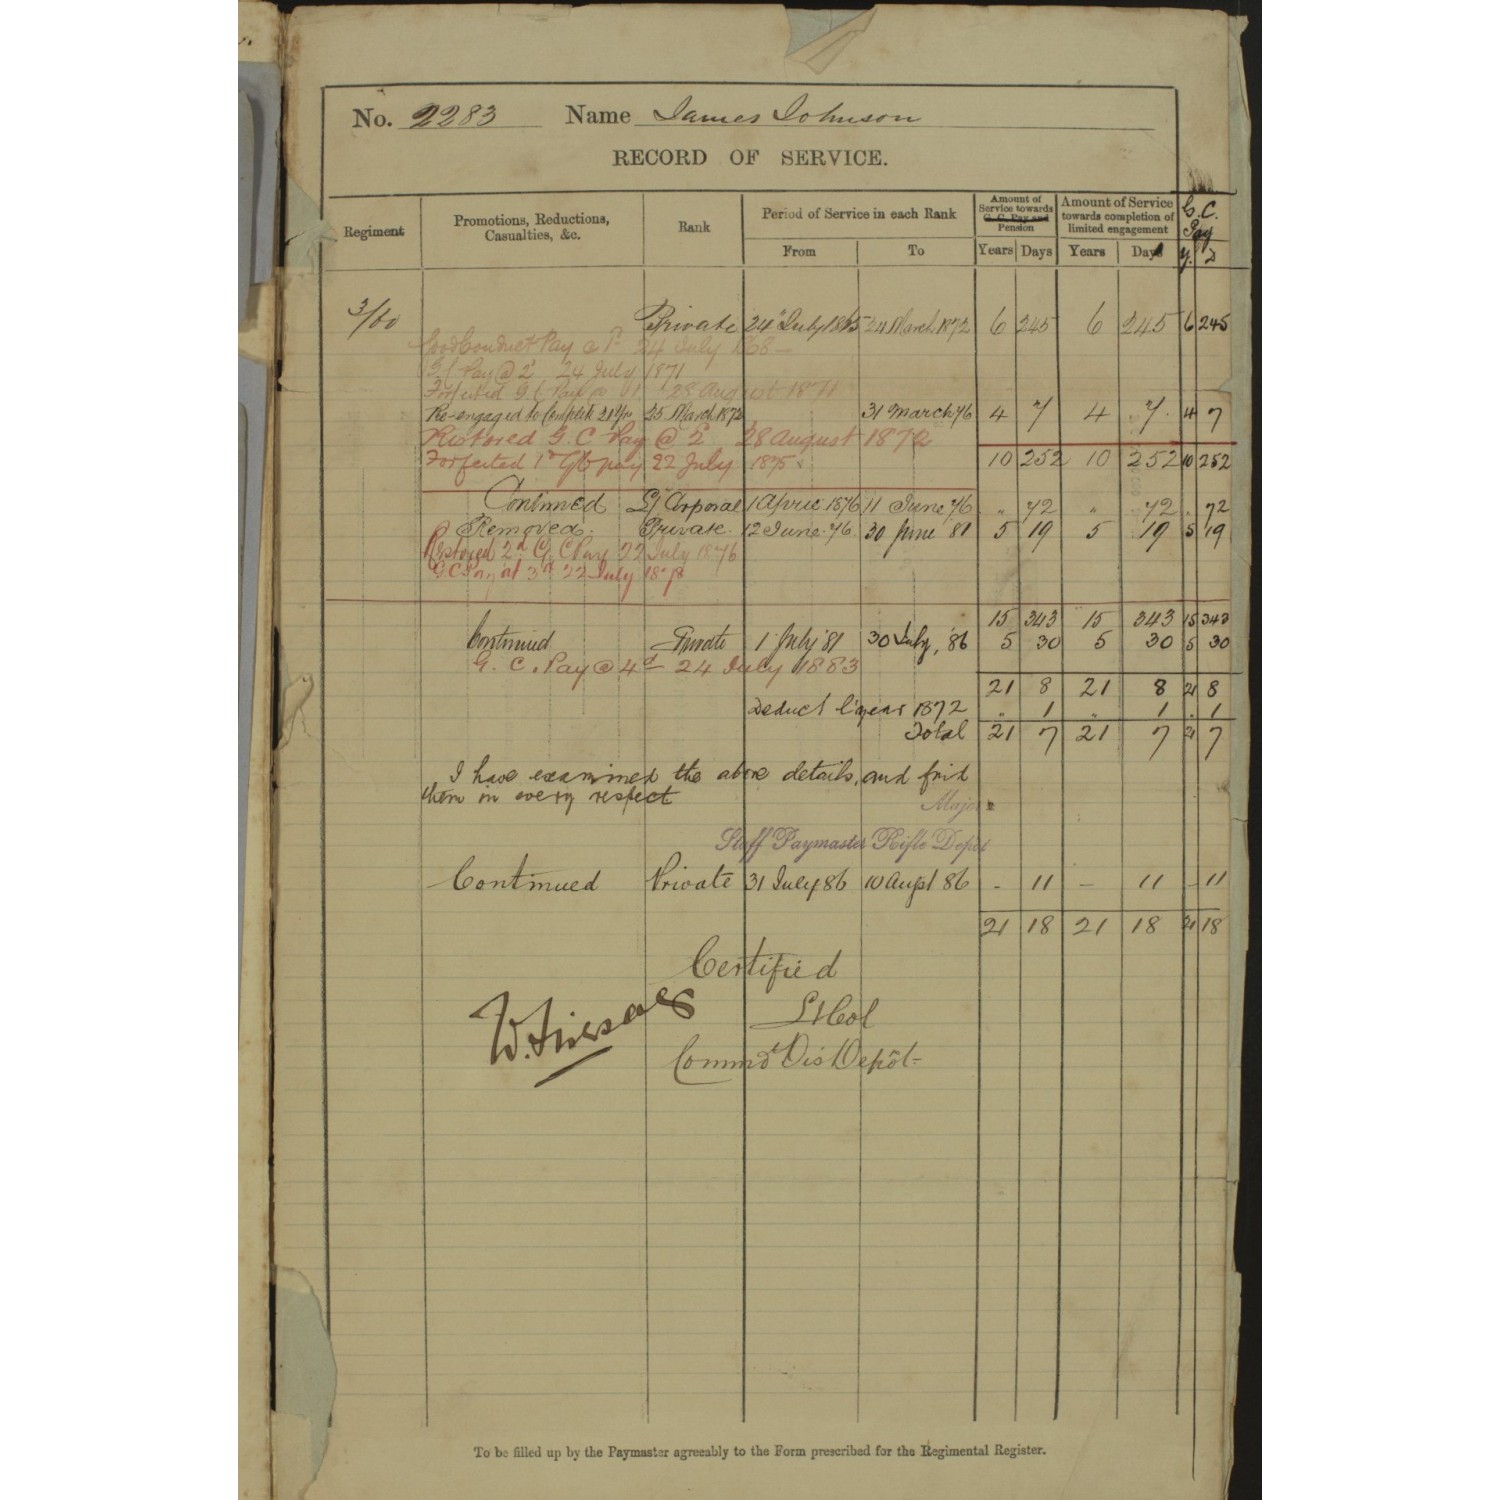 No. 2283 Name James Johnson
RECORD OF SERVICE.
Regiment Promotions, Reductions, Casualties, &c. Rank Period of Service in each Rank From To Amount of Service towards G. C. Pay and Pension Years Days Amount of Service towards completion of limited engagement Years Days G. C. Pay Y. D
3/60 Private 24 July 1865 24 March 1872 6 245 6 245 6 245
Good Conduct Pay @ 1d 24 July 1868
G C Pay @ 2d 24 July 1871
Forfeited G C Pay @ 1d 28 August 1871
Re-engaged to complete 21 Yrs 25 March 1872 31 March 76 4 7 4 7 4 7
Restored G. C Pay @ 2d 28 August 1872
Forfeited 1d pay 22 July 1875 10 252 10 252 10 252
Continued L/ Corporal 1 April 1876 11 June 76 " 72 " 72 . 72
Removed Private 12 June 76 30 June 81 5 19 5 19 5 19
Restored 2d G. C Pay 22 July 1876
G. C Pay at 3d 22 July 1878
15 343 15 343 15 343
Continued Private 1 July 81 30 July, 86 5 30 5 30 5 30
G. C. Pay @ 4d 24 July 1883
21 8 21 8 21 8
Deduct l'year 1872 " 1 " 1 . 1
Total 21 7 21 7 21 7
I have examined the above details, and find
them in every respect
Major
Staff Paymaster Rifle Depot
Continued Private 31 July 86 10 Augst 86 - 11 - 11 - 11
21 18 21 18 21 18
Certified
Lt Col
Commdt Dis Depôt
To be filled up by the Paymaster agreeably to the Form prescribed for the Regimental Register.